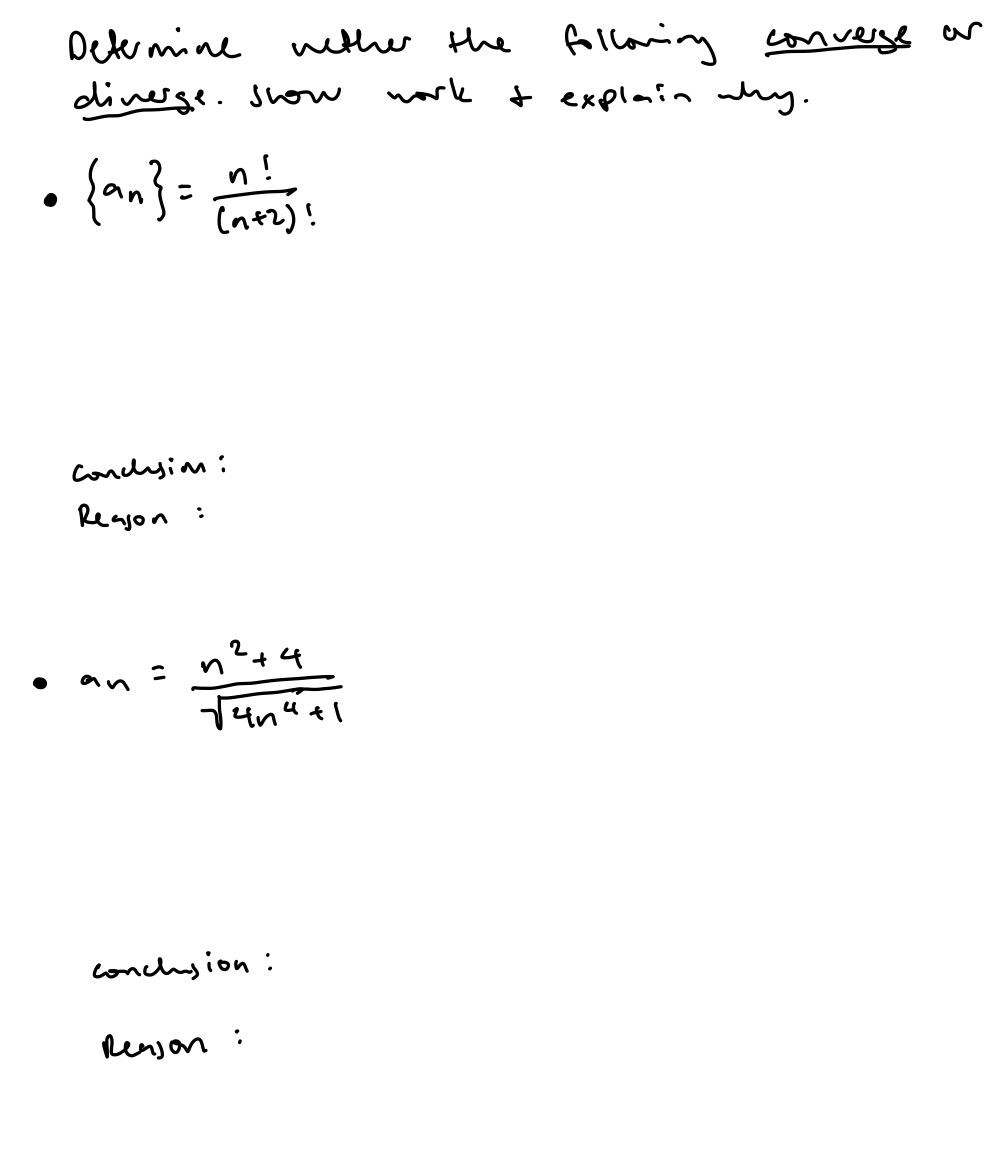 Determine wether the following converge or
diverge. show work & explain why.
• {an} = n! / (n+2)!
conclusion :
Reason :
• an = n² + 4 / √4n⁴ + 1
conclusion :
Reason :